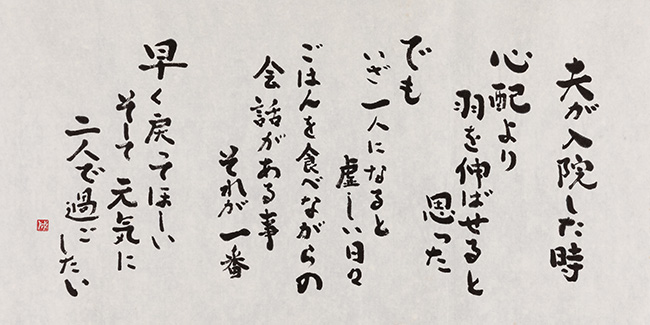 夫が入院した時
心配より
羽を伸ばせると
思った
でも
いざ一人になると
虚しい日々
ごはんを食べながらの
会話がある事
それが一番
早く戻ってほしい
そして元気に
二人で過ごしたい